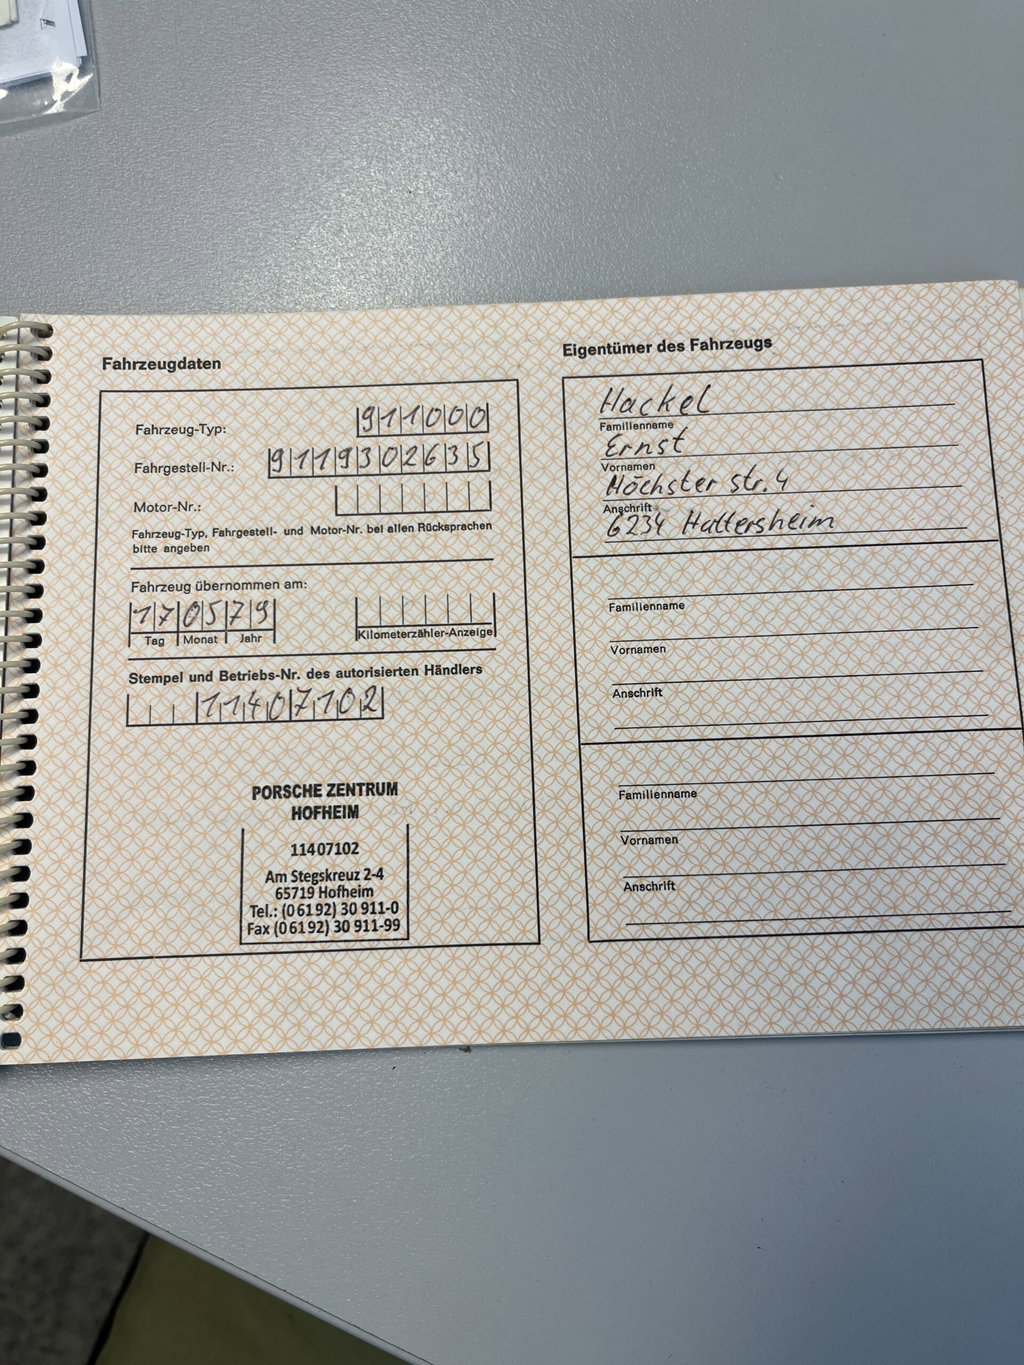 Fahrzeugdaten
Fahrzeug-Typ: 911000
Fahrgestell-Nr.: 9119302635
Motor-Nr.:
Fahrzeug-Typ, Fahrgestell- und Motor-Nr. bei allen Rücksprachen
bitte angeben
Fahrzeug übernommen am:
170579
Tag Monat Jahr
Kilometerzähler-Anzeige
Stempel und Betriebs-Nr. des autorisierten Händlers
11407102
PORSCHE ZENTRUM
HOFHEIM
11407102
Am Stegskreuz 2-4
65719 Hofheim
Tel.: (06192) 30 911-0
Fax (06192) 30 911-99
Eigentümer des Fahrzeugs
Hackel
Familienname
Ernst
Vornamen
Höchster str. 4
Anschrift
6234 Hattersheim
Familienname
Vornamen
Anschrift
Familienname
Vornamen
Anschrift